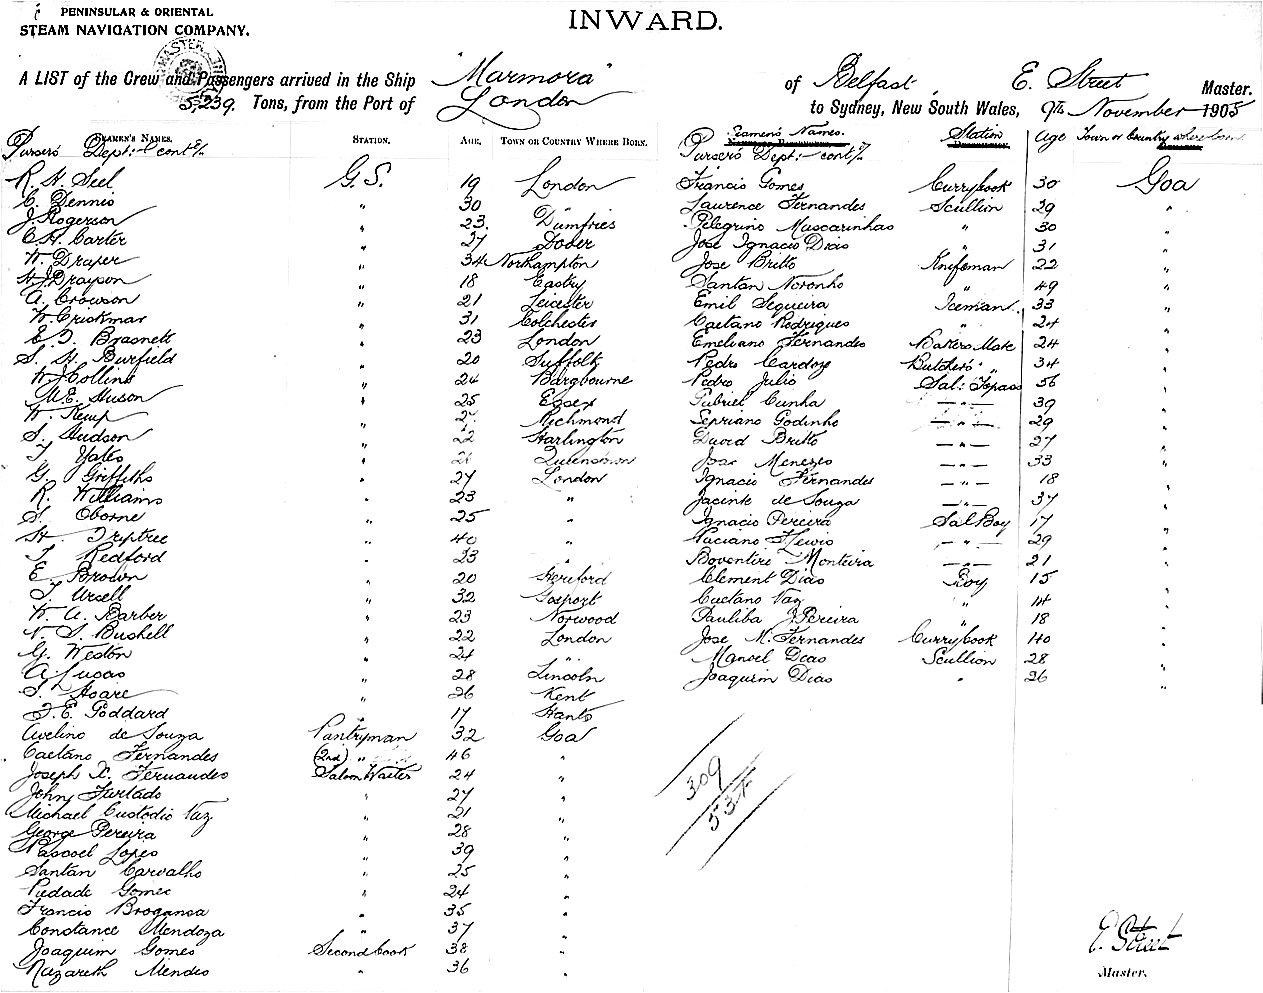 PENINSULAR & ORIENTAL
STEAM NAVIGATION COMPANY.
INWARD.
A LIST of the Crew and Passengers arrived in the Ship "Marmora" of Belfast, E. Street Master.
5,239. Tons, from the Port of London to Sydney, New South Wales, 9th November 1905
SEAMEN'S NAMES. STATION. AGE. TOWN OR COUNTRY WHERE BORN.
Pursers Dept:- cont/.
R. H. Seel G.S. 19 London
C. Dennis " 30 "
J. Rogerson " 23. Dumfries
C. H. Carter " 27 Dover
W. Draper " 34 Northampton
H. J. Drayson " 18 Eastry
A. Crowson " 21 Leicester
W. Crickmar " 31 Colchester
E. J. Brasnett " 23 London
S. H. Burfield " 20 Suffolk
W. J. Collins " 24
M. E. Huson " 25 Essex
W. Kemp " Richmond
S. Hudson " 22 Harlington
T. Yates " Queenstown
G. Griffiths " 27 London
R. Williams " 23 "
S. Oborne " 25 "
H. Triptree " 40 "
T. Redford " 23 "
E. Brown " 20 Hereford
T. Ursell " 32 Gosport
W. A. Barber " 23 Norwood
N. S. Bushell " 22 London
G. Weston " 24 "
A. Lucas " 28 Lincoln
T. Hoare " 26 Kent
F. E. Goddard " 17 Hants
Avelino de Souza Pantryman 32 Goa
Caetano Fernandes (2nd) " 46 "
Joseph X. Fernandes Saloon Waiter 24 "
John Furtado " 27 "
Michael Custodio Vaz " 21 "
George Pereira " 28 "
Pascoel Lopes " 39 "
Santan Carvalho " 25 "
Piedade Gomes " 24 "
Francis Braganca " 35 "
Constance Mendoza " 37 "
Joaquim Gomes Second Cook 38 "
Nazareth Mendes " 36 "
Seamen's Names. Station Age Town or Country where born
Pursers Dept:- cont/.
Francis Gomes Curry Cook 30 Goa
Laurence Fernandes Scullion 29 "
Pelegrino Mascarinhas " 30 "
Jose Ignacio Dias " 31 "
Jose Britto Knifeman 22 "
Santan Noronho " 49 "
Emil Sequeira Iceman 33 "
Caetano Rodrigues " 24 "
Emeliano Fernandes Bakers Mate 24 "
Pedro Cardoz Butchers' " 34 "
Pedro Julio Sal: Topass 56 "
Gabriel Cunha — " — 39 "
Sepriano Godinho — " — 29 "
David Britto — " — 27 "
Jose Menezes — " — 33 "
Ignacio Fernandes — " — 18 "
Jacinte de Souza — " — 37 "
Ignacio Pereira Sal Boy 17 "
Paciano Flewis — " — 29 "
Boventire Monteira — " — 21 "
Clement Dias Boy 15 "
Caetano Vaz " 14 "
Pauliba J. Pereira " 18 "
Jose M. Fernandes Curry Cook 40 "
Manoel Dias Scullion 28 "
Joaquim Dias " 26 "
309
E. Street
Master.